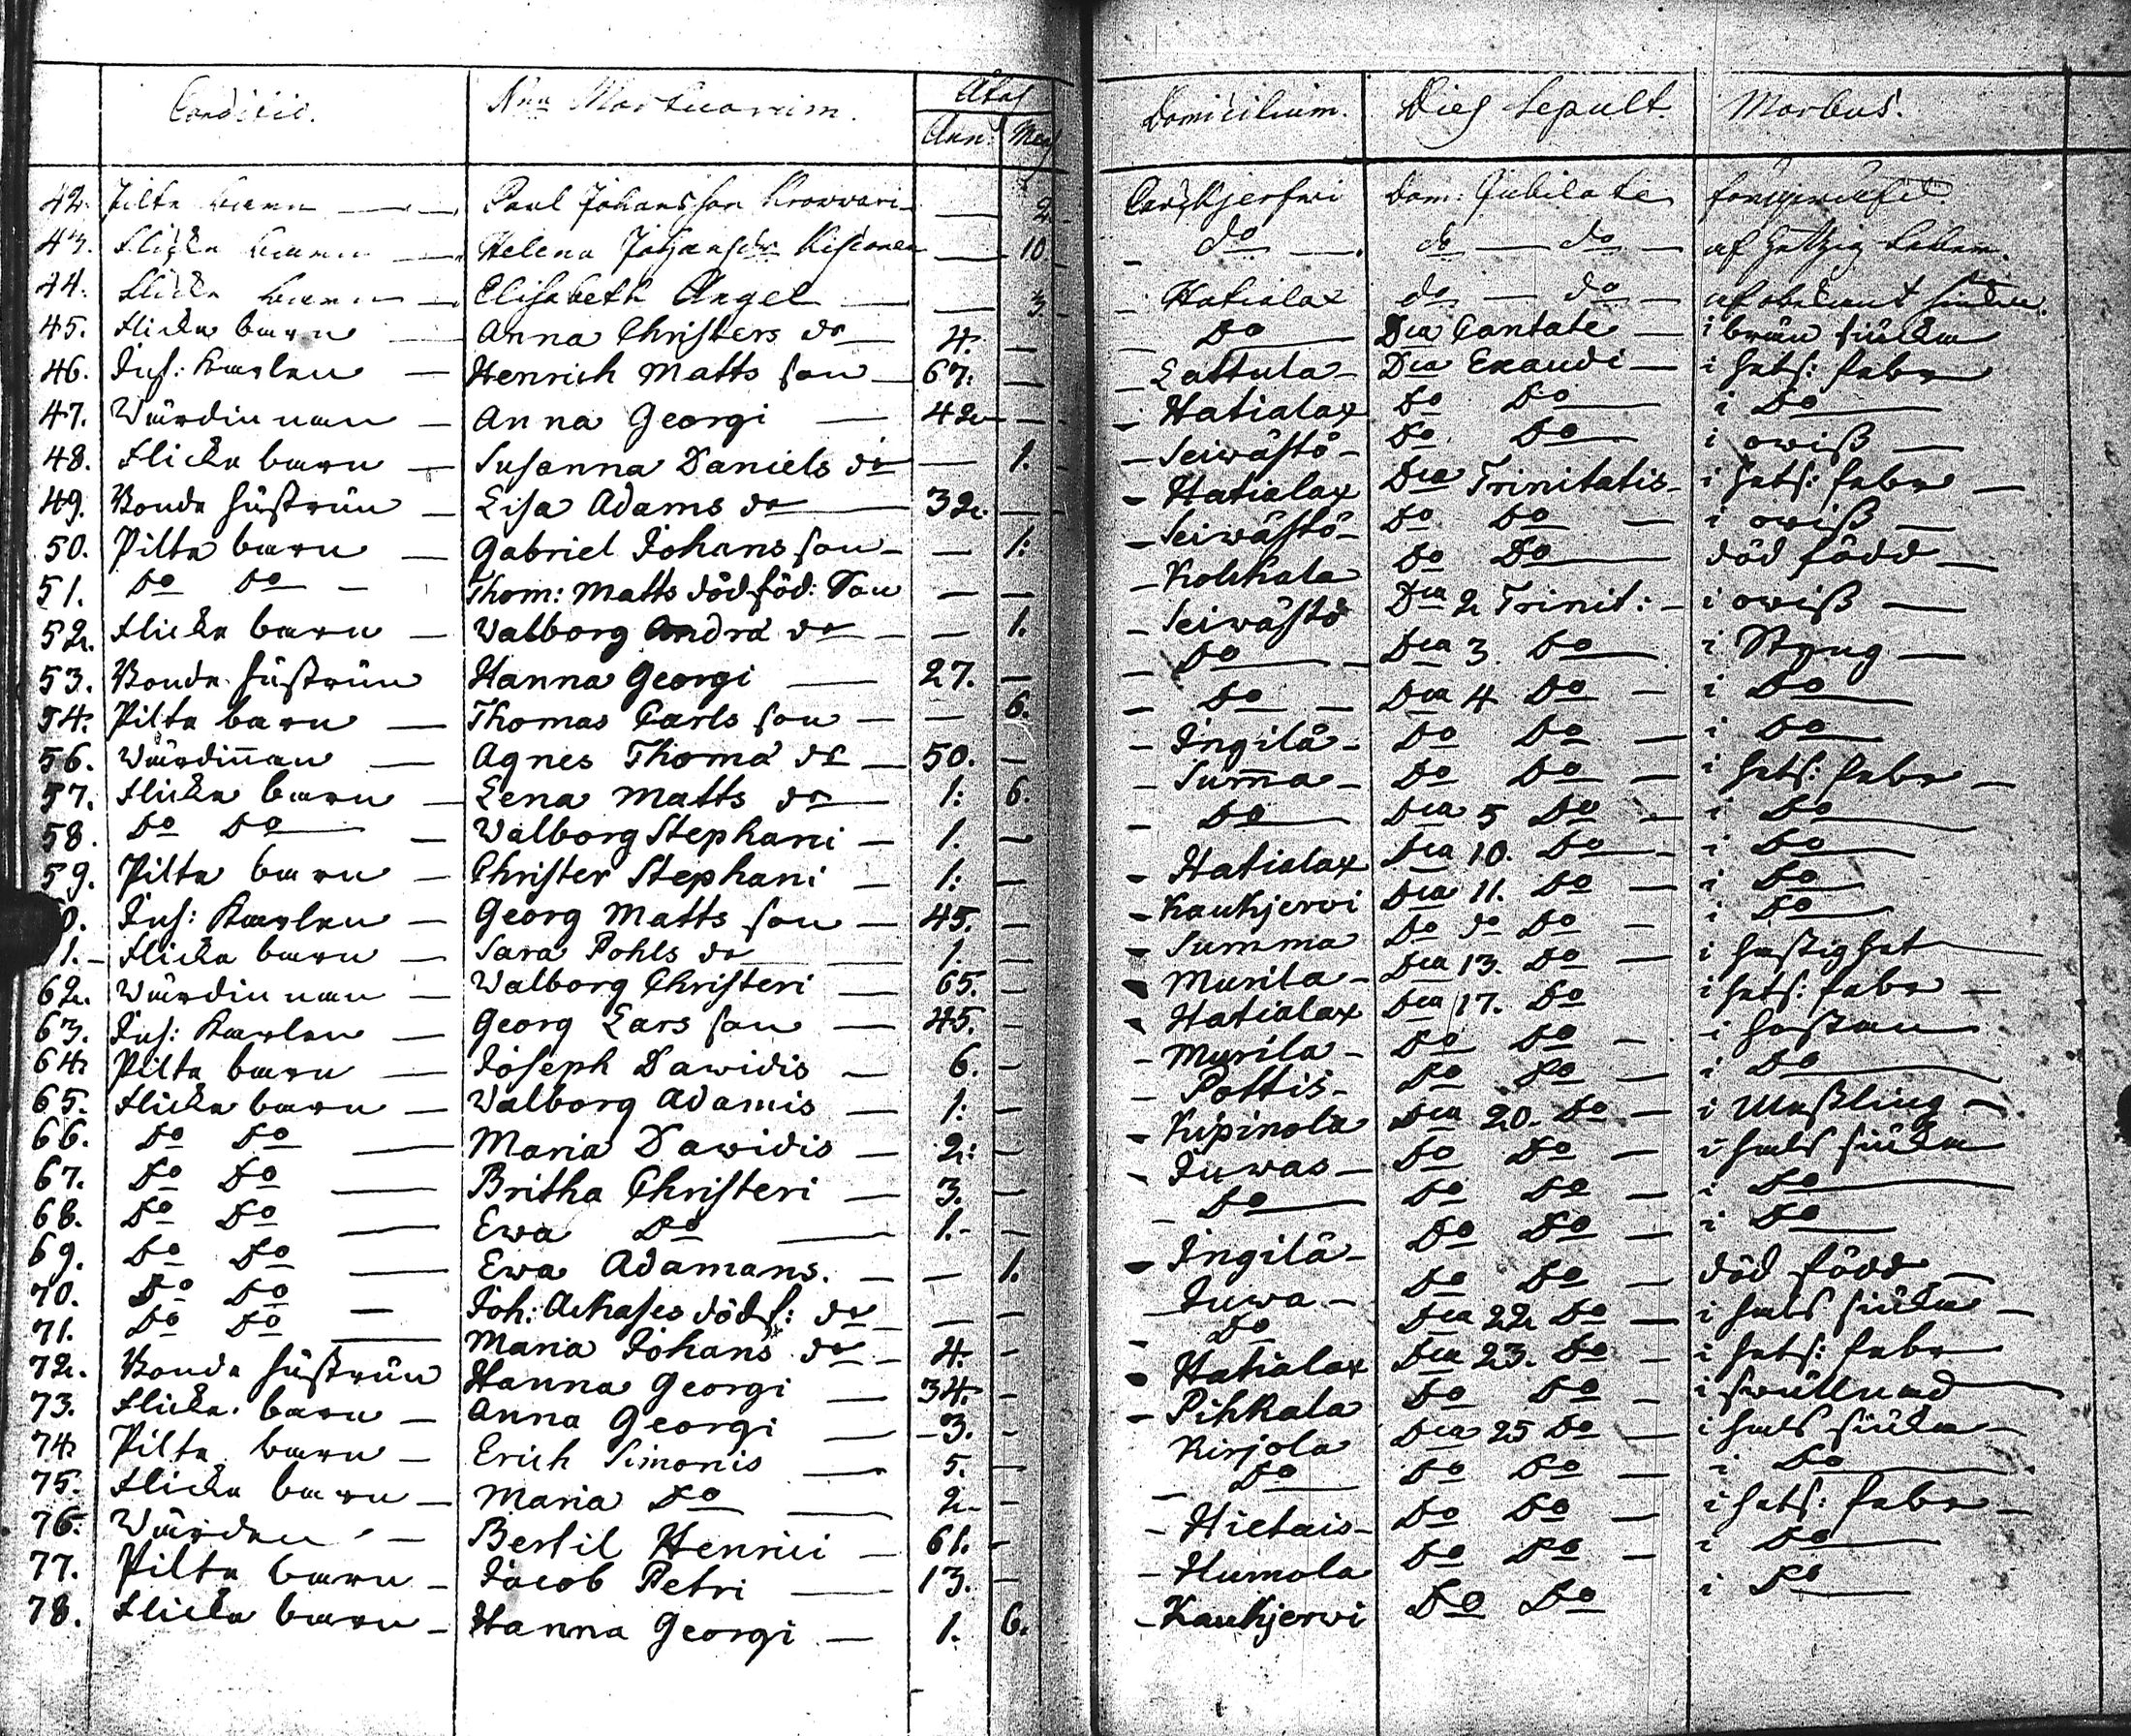 Conditio. Nna Mortuorum. Ætas Domicilium. Dies Sepult. Morbus.
Ann: Mens
42. Pilte barn — Paul Johansson — 2. Dom: Jubilate
43. Flicke barn — Helena Johans dr — 10. do — do — do — af
44. Flicke barn — Elisabeth Angel — 3. Hatialax do — do — af obekant
45. Flicke barn — Anna Christers dr 4. — Do Dca Cantate — i brän siuka
46. Inh: Karlen — Henrich Matts son 67. — Lattula Dca Exaudi — i hets: feber
47. Wärdinnan — Anna Georgi — 42 — Hatialax Do Do i Do
48. Flicke barn — Susanna Daniels dr — 1. Seiwästö Do Do i owiß —
49. Bonde hustrun — Lisa Adams dr 32. — Hatialax Dca Trinitatis i hets: feber —
50. Pilte barn — Gabriel Johans son — 1: Seiwästö Do Do — i owiß —
51. Do Do — Thom: Matts dödföd: Son — — Kolkkala Do Do död född —
52. Flicke barn — Walborg Andræ dr — 1. Seiwästö Dca 2 Trinit: — i owiß —
53. Bonde hustrun Hanna Georgi — 27. — Do — Dca 3. Do i Styng —
54. Pilte barn — Thomas Carls son — — 6. Do — Dca 4 Do — i Do
56. Wärdinnan — Agnes Thomæ dr — 50. — Ingilä Do Do — i Do
57. Flicke barn — Lena Matts dr 1: 6. Summa Do Do — i hets: feber —
58. Do Do — Walborg Stephani — 1. — Do Dca 5 Do — i Do
59. Pilte barn — Christer Stephani — 1: — Hatialax Dca 10. Do — i Do
0. Inh: Karlen — Georg Matts son — 45. — Kaukjerwi Dca 11. Do — i Do
1. Flicke barn — Sara Pohls dr 1. — Summa Do do Do — i Do
62. Wärdinnan — Walborg Christeri — 65. — Murila Dca 13. Do — i hastighet
63. Inh: Karlen — Georg Lars son — 45. — Hatialax Dca 17. Do i hets: feber —
64 Pilte barn — Joseph Dawidis — 6. — Murila Do Do — i hostan
65. Flicke barn — Walborg Adamis — 1: — Pottis Do Do — i Do
66. Do Do — Maria Dawidis — 2: — Kipinola Dca 20. Do — i Meßling —
67. Do Do — Britha Christeri — 3. — Juwas Do Do — i hals siuka
68. Do Do — Ewa Do — 1. — Do Do Do — i Do
69. Do Do — Ewa Adamans. — — 1. Ingilä Do Do — i Do
70. Do Do — Joh: dödf: dr — — Juwa Do Do — död född —
71. Do Do — Maria Johans dr — 4. — Do Dca 22 Do — i hals siuka —
72. Bonde hustrun Hanna Georgi — 34. — Hatialax Dca 23. Do — i hets: feber
73. Flicke barn — Anna Georgi — 3. — Pihkala Do Do — i
74 Pilte barn — Erich Simonis — 5. — Kirjola Dca 25 Do — i hals siuka —
75. Flicke barn — Maria Do 2 — Do Do Do — i Do
76. Wärden — Bertil Henrici — 61. — Hietais Do Do — i hets: feber —
77. Pilte barn — Jacob Petri — 13. — Humola Do Do — i Do
78. Flicke barn — Hanna Georgi — 1. 6. Kaukjerwi Do Do i Do